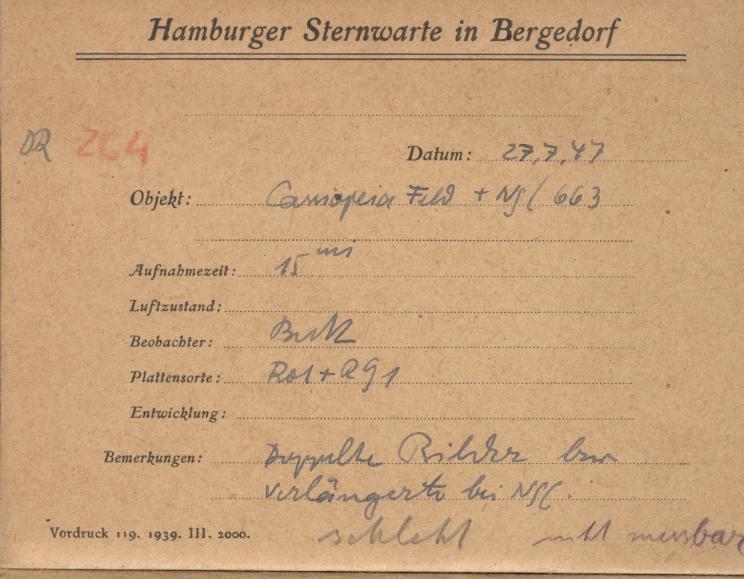 Hamburger Sternwarte in Bergedorf
DR 264
Datum: 27.7.47
Objekt: Cassiopeia Feld + NGC 663
Aufnahmezeit: 15 m
Luftzustand:
Beobachter:
Plattensorte: Rot + RG1
Entwicklung:
Bemerkungen: Doppelte Bilder bzw
verlängerte bei NGC.
Vordruck 119. 1939. III. 2000. schlecht nicht messbar